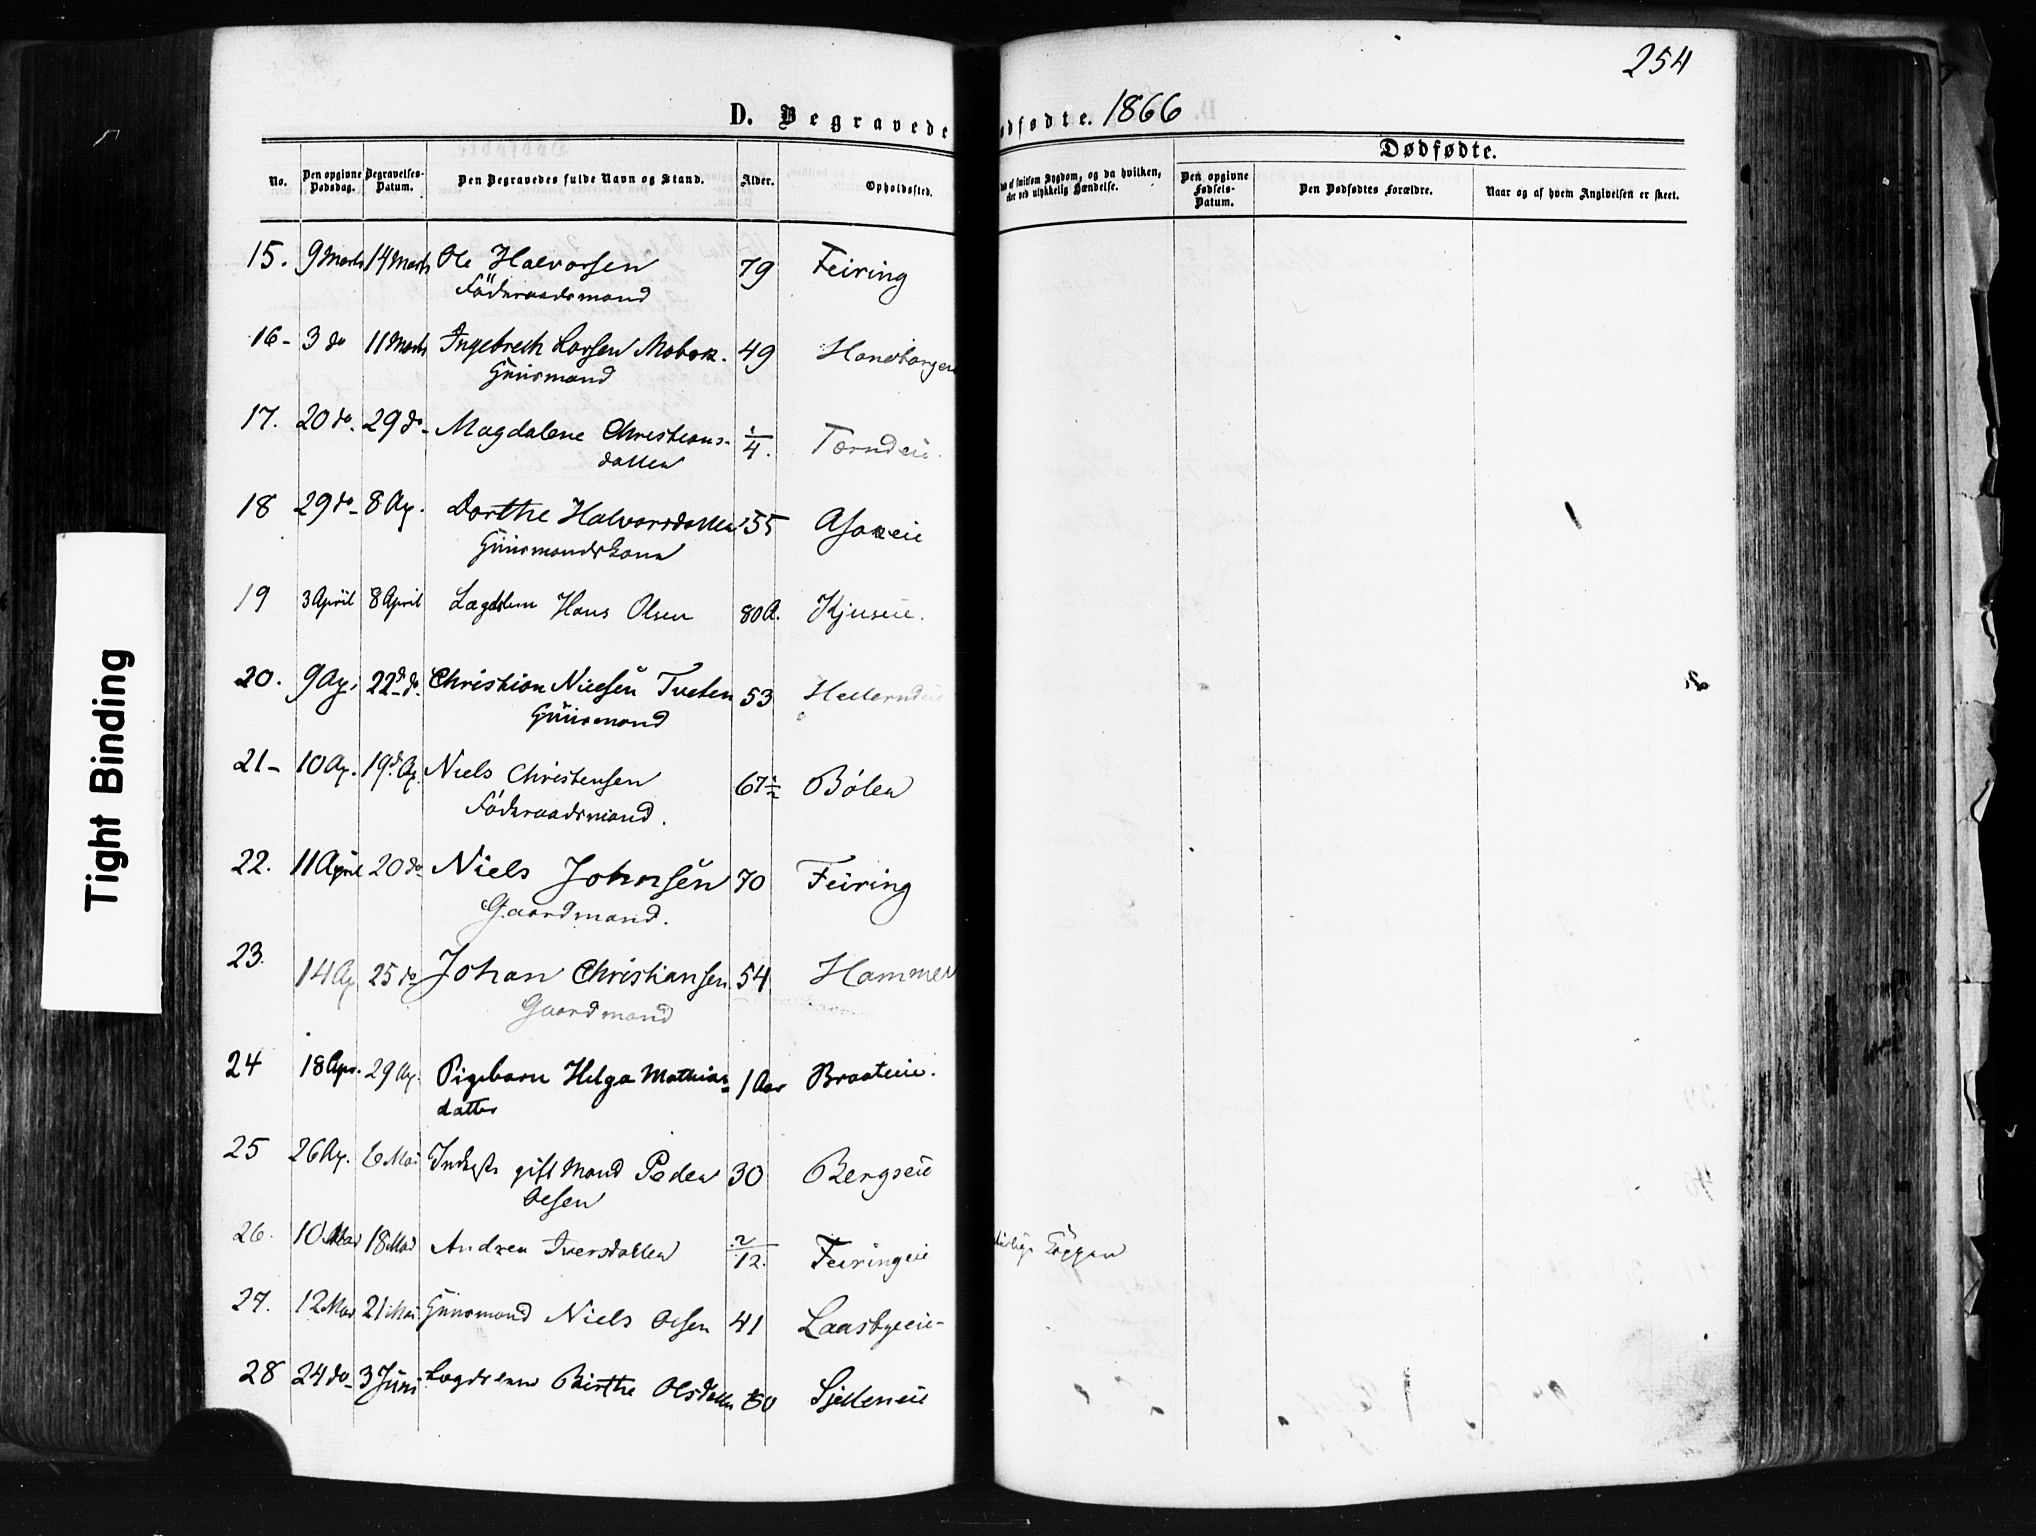 254
D. Begravede
ødfødte. 1866
Dødfødte.
No.
Den opgivne Dødsdag.
Begravelses-Datum.
Den Begravedes fulde Navn og Stand.
Alder.
Opholdssted.
af smitsom Sygdom, og da hvilken,
eller ved ulykkelig Hændelse.
Den opgivne Fødsels-Datum.
Den Dødfødtes Forældre.
Naar og af hvem Angivelsen er skeet.
15. 9 Marts 14 Marts Ole Halvorsen 79 Feiring
Föderaadsmand
16- 3 do 11 Marts Ingebreth Larsen 49
Huusmand
17. 20 do. 29 do- Magdalene Christians- 1/4. Tærudeie.
datter
18 29 do- 8 Ap. Dorthe Halvorsdatter 55
Huusmandskone
19 3 April 8 April Lægdslem Hans Olsen 80 A. Kjuseie.
20. 9 Ap. 22 do- Christian Nielsen Tveten 53
Huusmand
21- 10 Ap. 19 Ap. Niels Christensen 67 1/2 Bölen
Föderaadsmand.
22. 11 April 20 do Niels Johnsen 70 Feiring
Gaardmand.
23. 14 Ap 25 do Johan Christiansen 54 Hammer
Gaardmand
24 18 Apr. 29 Ap. Pigebarn Helga Mathias- 1 Aar Braateeie.
datter
25 26 Ap. 6 Mai Inderst gift Mand Peder 30 Bergseie
Olsen
26. 10 Mai 18 Mai Andrea Iversdatter 2/12. Feiringeie
27. 12 Mai 21 Mai Huusmand Niels Olsen 41 Laasbyeeie-
28 24 do- 3 Juni Lægdslem Birthe Olsdatter Sjelleneie
Tight Binding